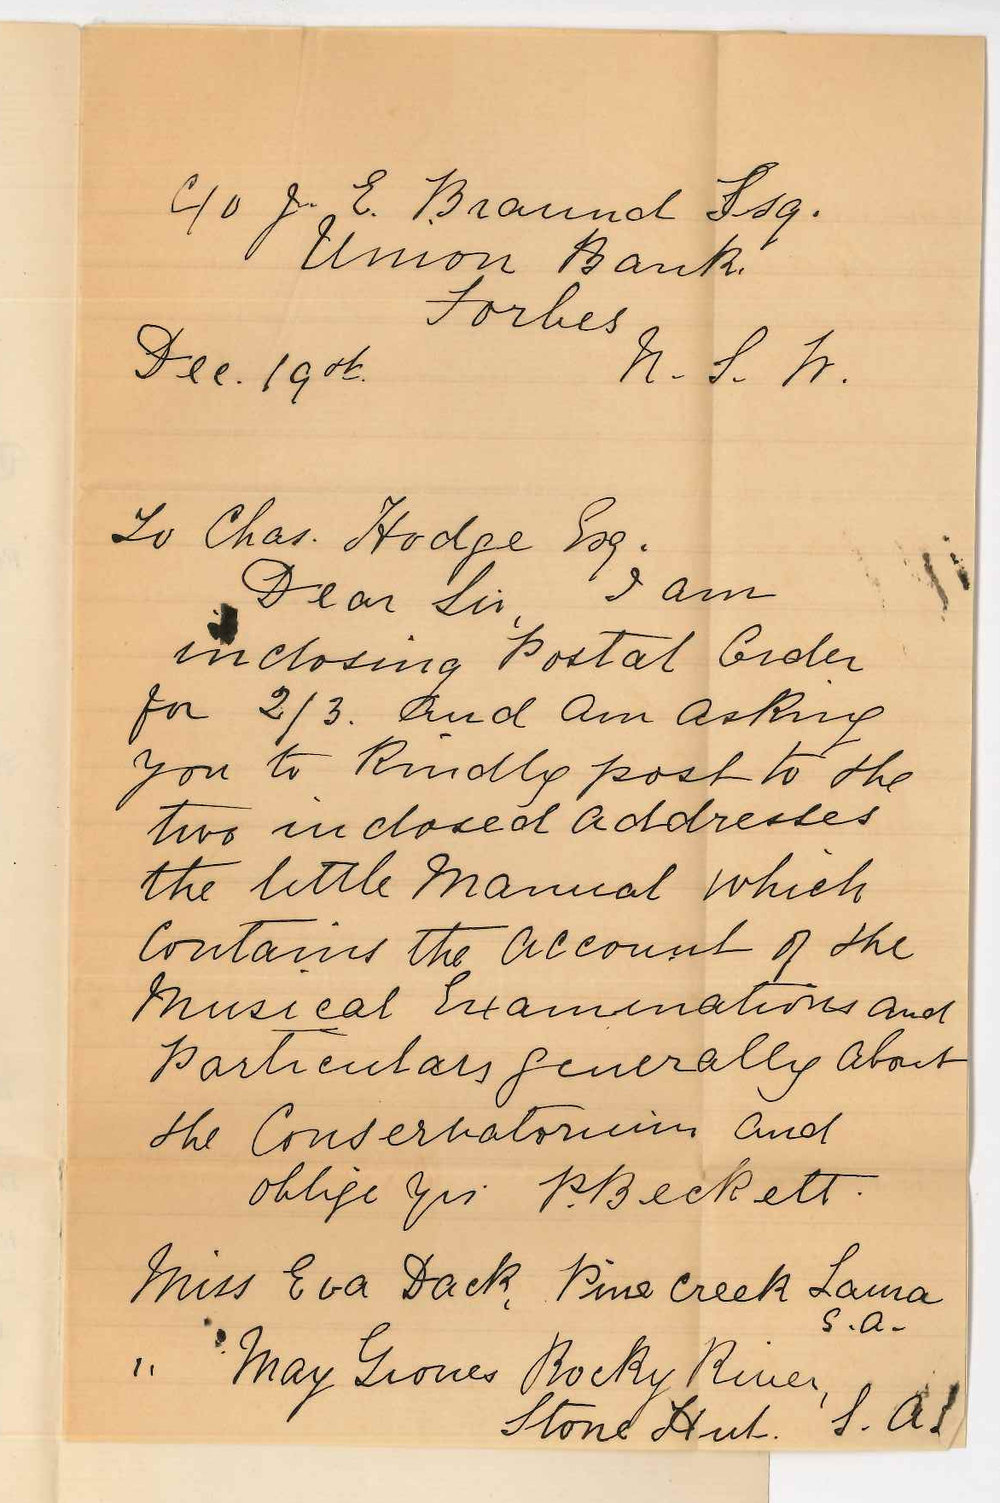 C/o J. E. Braund Esq.
Union Bank.
Forbes
Dec. 19th. N. S. W.
To Chas. Hodge Esq.
Dear Sir, I am
inclosing Postal Order
for 2/3. and am asking
you to kindly post to the
two inclosed addresses
the little Manual which
contains the account of the
Musical Examinations and
Particulars generally about
the Conservatorium and
oblige yrs P. Beckett.
Miss Eva Dack, Pine Creek Laura
S.A.
" May Groves Rocky River,
Stone Hut. S. A.